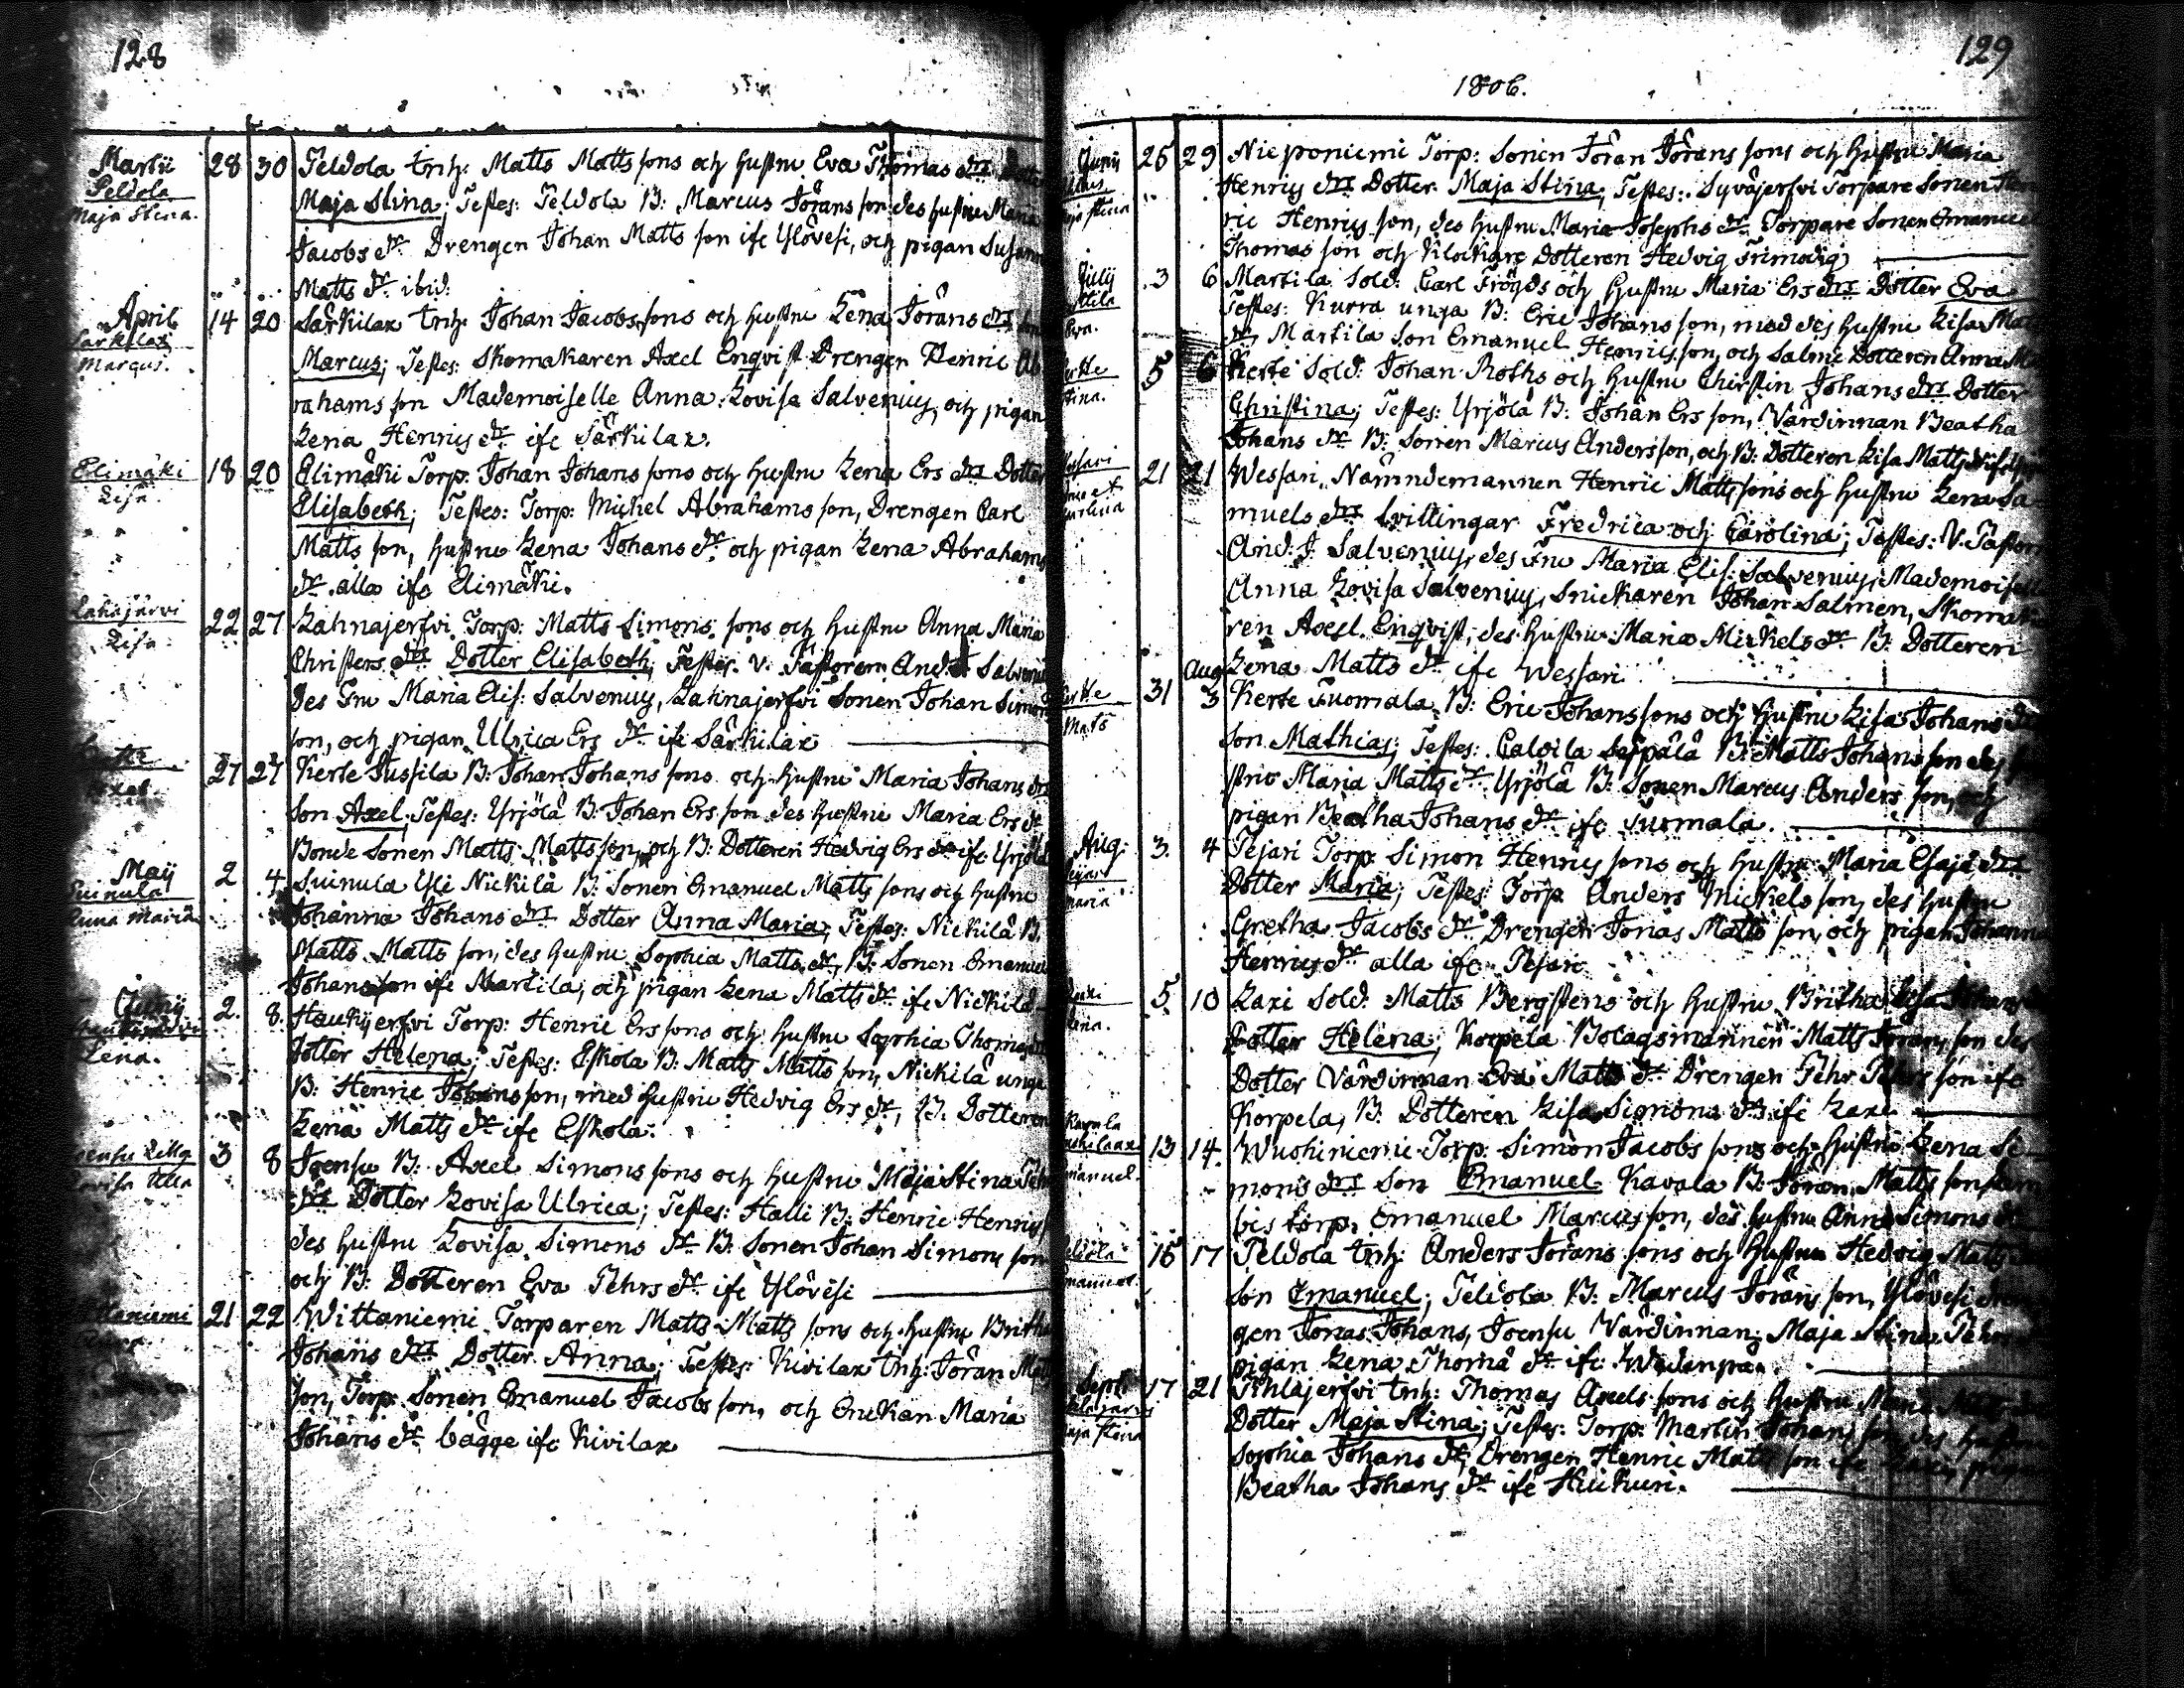 128
Martii 28 30 Peldola trh: Matts Matts sons och hustru Eva Thomas drs Dotter
Peldola
Maja Stina.
Maja Stina; Testes: Peldola B: Marcus Jörans son des hustru Maria
Jacobs dr Drengen Johan Matts son ifr Ylövesi, och pigan Susanna
Matts dr ibid:
April 14 20 Särkilax trh: Johan Jacobs sons och hustru Lena Jörans drs Son
Särkilax
Marcus.
Marcus; Testes: Skomakaren Axel Enqvist Drengen Henric Ab
rahams son Mademoiselle Anna Lovisa Salvenius, och pigan
Lena Henrics dr ifr Särkilax.
Elimäki 18 20 Elimäki Torp: Johan Johans sons och hustru Lena Ers drs Dotter
Lisa.
Elisabeth; Testes: Torp: Mickel Abrahams son, Drengen Carl
Matts son, hustru Lena Johans dr och pigan Lena Abrahams
dr alla ifr Elimäki.
Lahnajärvi 22 27 Lahnajerfvi Torp: Matts Simons sons och hustru Anna Maria
Lisa.
Christers drs Dotter Elisabeth; Testes: V. Pastoren And: J. Salvenius
des Fru Maria Elis: Salvenius, Lahnajerfvi Sonen Johan Simons
son, och pigan Ulrica Ers dr ifr Särkilax
27 27 Kerte Jussila B: Johan Johans sons och hustru Maria Johans drs
Axel.
Son Axel; Testes: Yrjölä B: Johan Ers son des hustru Maria Ers dr
Bonde Sonen Matts Matts son, och B: Dotteren Hedvig Ers dr ifr Yrjölä
Maij 2 4 Suinula Yli Nickilä B: Sonen Emanuel Matts sons och hustru
Suinula
Anna Maria
Johanna Johans drs Dotter Anna Maria; Testes: Nickilä B.
Matts Matts son, des hustru Sophia Matts dr, B: Sonen Emanuel
Johans son ifr Martila, och pigan Lena Matts dr ifr Nickilä
Junij 2. 8. Haukijerfvi Torp: Henric Ers sons och hustru Sophia Thomas drs
Haukijerfvi
Lena.
Dotter Helena; Testes: Eskola B: Matts Matts son, Nickilä unga
B: Henric Johans son, med hustru Hedvig Ers dr, B: Dotteren
Lena Matts dr ifr Eskola.
3 8 Joensu B: Axel Simons sons och hustru Maja Stina Pehrs
Lovisa Ulla
drs Dotter Lovisa Ulrica; Testes: Halli B: Henric Henrics
des hustru Lovisa Simons dr B: Sonen Johan Simons son
och B: Dotteren Eva Pehrs dr ifr Ylövesi
21 22 Wittaniemi Torparen Matts Matts sons och hustru Britha
Johans drs Dotter Anna; Testes: Kivilax trh: Jöran Matts
son, Torp: Sonen Emanuel Jacobs son, och Enckan Maria
Johans dr bägge ifr Kivilax
129
1806.
Junii 25 29 Nieponiemi Torp: Sonen Jöran Jörans sons och hustru Maria
Maja Stina
Henrics drs Dotter Maja Stina; Testes: Syväjerfvi Torpare Sonen Hen
ric Henrics son, des hustru Maria Josephs dr Torpare Sonen Emanuel
Thomas son och Klockare Dotteren Hedvig Frimodig
Julij 3 6 Martila Sold: Carl Fröjds och hustru Maria Ers drs Dotter Eva
Eva.
Testes: Kurra unga B: Eric Johans son, med des hustru Lisa Matts
dr, Martila Son Emanuel Henrics son, och Salmi Dotteren Anna
5 6 Kerte Sold: Johan Roths och hustru Chirstin Johans drs Dotter
Christina; Testes: Yrjölä B: Johan Ers son, Värdinnan Beatha
Johans dr B: Sonen Marcus Anders son, och B: Dotteren Lisa Matts dr ifr
21 21 Wessari, Nämndemannen Henric Matts sons och hustru Lena Sa
muels drs tvillingar Fredrica och Carolina; Testes: V. Pastoren
And: J. Salvenius, des Fru Maria Elis: Salvenius, Mademoiselle
Anna Lovisa Salvenius, Snickaren Johan Salmen, Skomaka
ren Axel Enqvist, des hustru Maria Mickels dr B: Dotteren
Lena Matts dr ifr Wessari
Aug
31 3 Kerte Tuomala B: Eric Johans sons och hustru Lisa Johans drs
Mats
Son Mathias; Testes: Calvila Seppälä B: Matts Johans son des hu
stru Maria Matts dr Yrjölä B: Sonen Marcus Anders son, och
pigan Beatha Johans dr ifr Tuomala.
Aug: 3. 4 Pejari Torp: Simon Henrics sons och hustru Maria Esaiæ drs
Maria
Dotter Maria; Testes: Torp: Anders Mickels son, des hustru
Gretha Jacobs dr Drengen Jonas Matts son, och pigan Johanna
Henrics dr alla ifr Pejari
5. 10 Laxi Sold: Matts Bergstens och hustru Britha Lisa Johans
Lena.
Dotter Helena; Korpela Bolagsmannen Matts Jörans son des
Dotter Värdinnan Eva Matts dr Drengen Pehr Pehrs son ifr
Korpela, B: Dotteren Lisa Simons dr ifr Laxi
13 14. Wuohiniemi Torp: Simon Jacobs sons och hustru Lena Si
manuel.
mons drs Son Emanuel Kavala B: Jöran Matts son
torp: Emanuel Marcus son, des hustru Anna Simons dr
16 17 Peldola trh: Anders Jörans sons och hustru Hedvig Matts
Son Emanuel; Peldola B: Marcus Jörans son, Ylövesi Dren
gen Jonas Johans, Joensu Värdinnan Maja Stina Pehrs
pigan Lena Thomæ dr ifr
Sept: 17 21 Pihlajerfvi trh: Thomas Axels sons och hustru Maria
Maja Stina
Dotter Maja Stina; Testes: Torp: Martin Johans son, des hustru
Sophia Johans dr, Drengen Henric Matts son ifr Laxi, pigan
Beatha Johans dr ifr Huikuri.